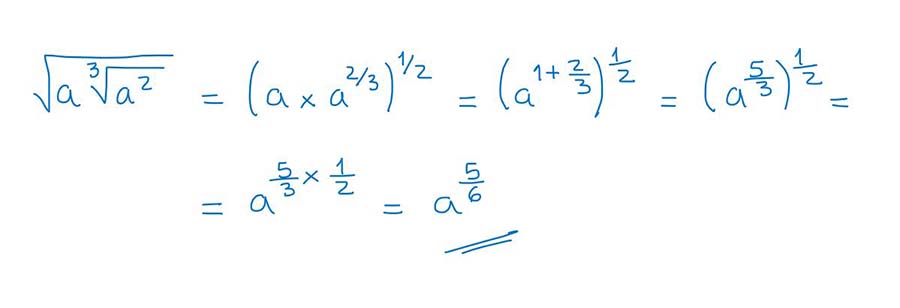 √(a ∛(a²)) = (a × a^{2/3})^{1/2} = (a^{1+2/3})^{1/2} = (a^{5/3})^{1/2} =
= a^{5/3 × 1/2} = a^{5/6}